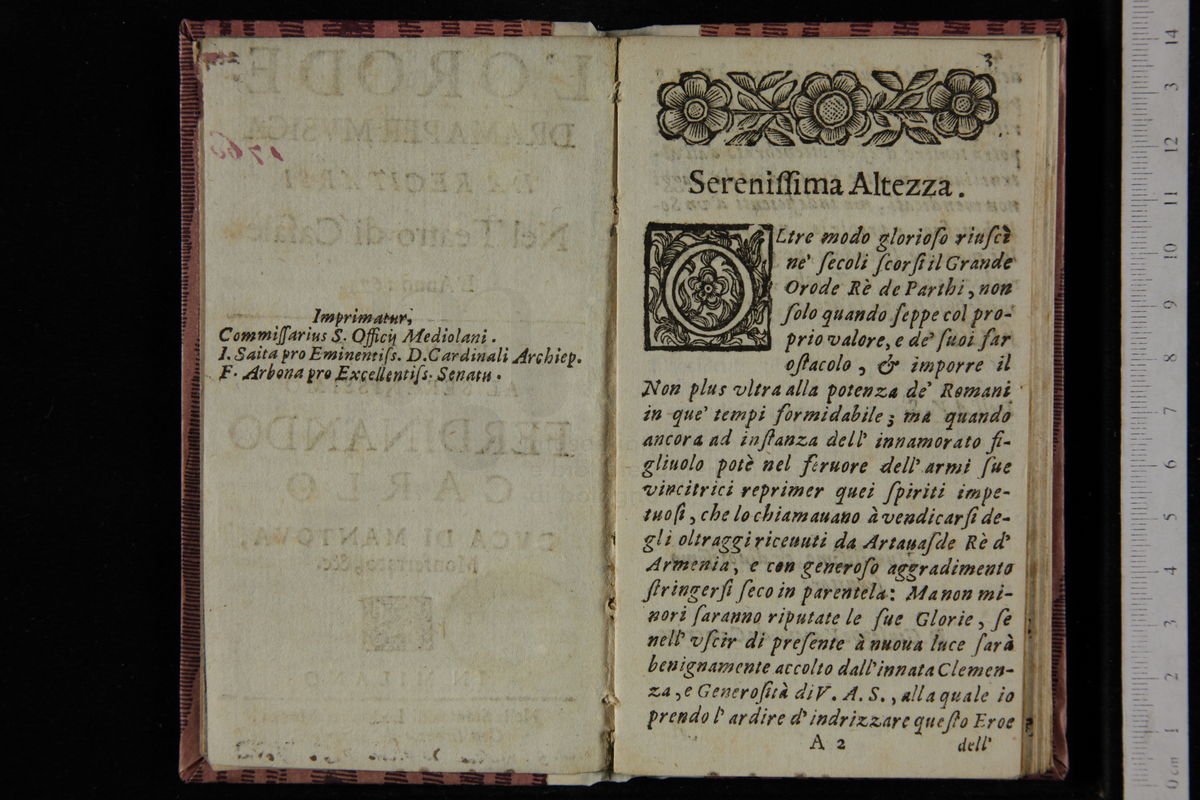 Imprimatur,
Commissarius S. Officij Mediolani.
I. Saita pro Eminentiss. D. Cardinali Archiep.
F. Arbona pro Excellentiss. Senatu.
3
Serenissima Altezza.
OLtre modo glorioso riuscì
ne' secoli scorsi il Grande
Orode Rè de Parthi, non
solo quando seppe col pro-
prio valore, e de' suoi far
ostacolo, & imporre il
Non plus vltra alla potenza de' Romani
in que' tempi formidabile; ma quando
ancora ad instanza dell' innamorato fi-
gliuolo potè nel feruore dell' armi sue
vincitrici reprimer quei spiriti impe-
tuosi, che lo chiamauano à vendicarsi de-
gli oltraggi riceuuti da Artauasde Rè d'
Armenia, e con generoso aggradimento
stringersi seco in parentela: Ma non mi-
nori saranno riputate le sue Glorie, se
nell' vscir di presente à nuoua luce sarà
benignamente accolto dall' innata Clemen-
za, e Generosità di V. A. S., alla quale io
prendo l' ardire d' indrizzare questo Eroe
A 2 dell'
L'ORODE
DRAMA PER MVSICA
DA RECITARSI
Nel Teatro di Casale
FERDINANDO
CARLO
DVCA DI MANTOVA,
Monferrato, &c.
1760
14
13
12
11
10
9
8
7
6
5
4
3
2
1
0 cm